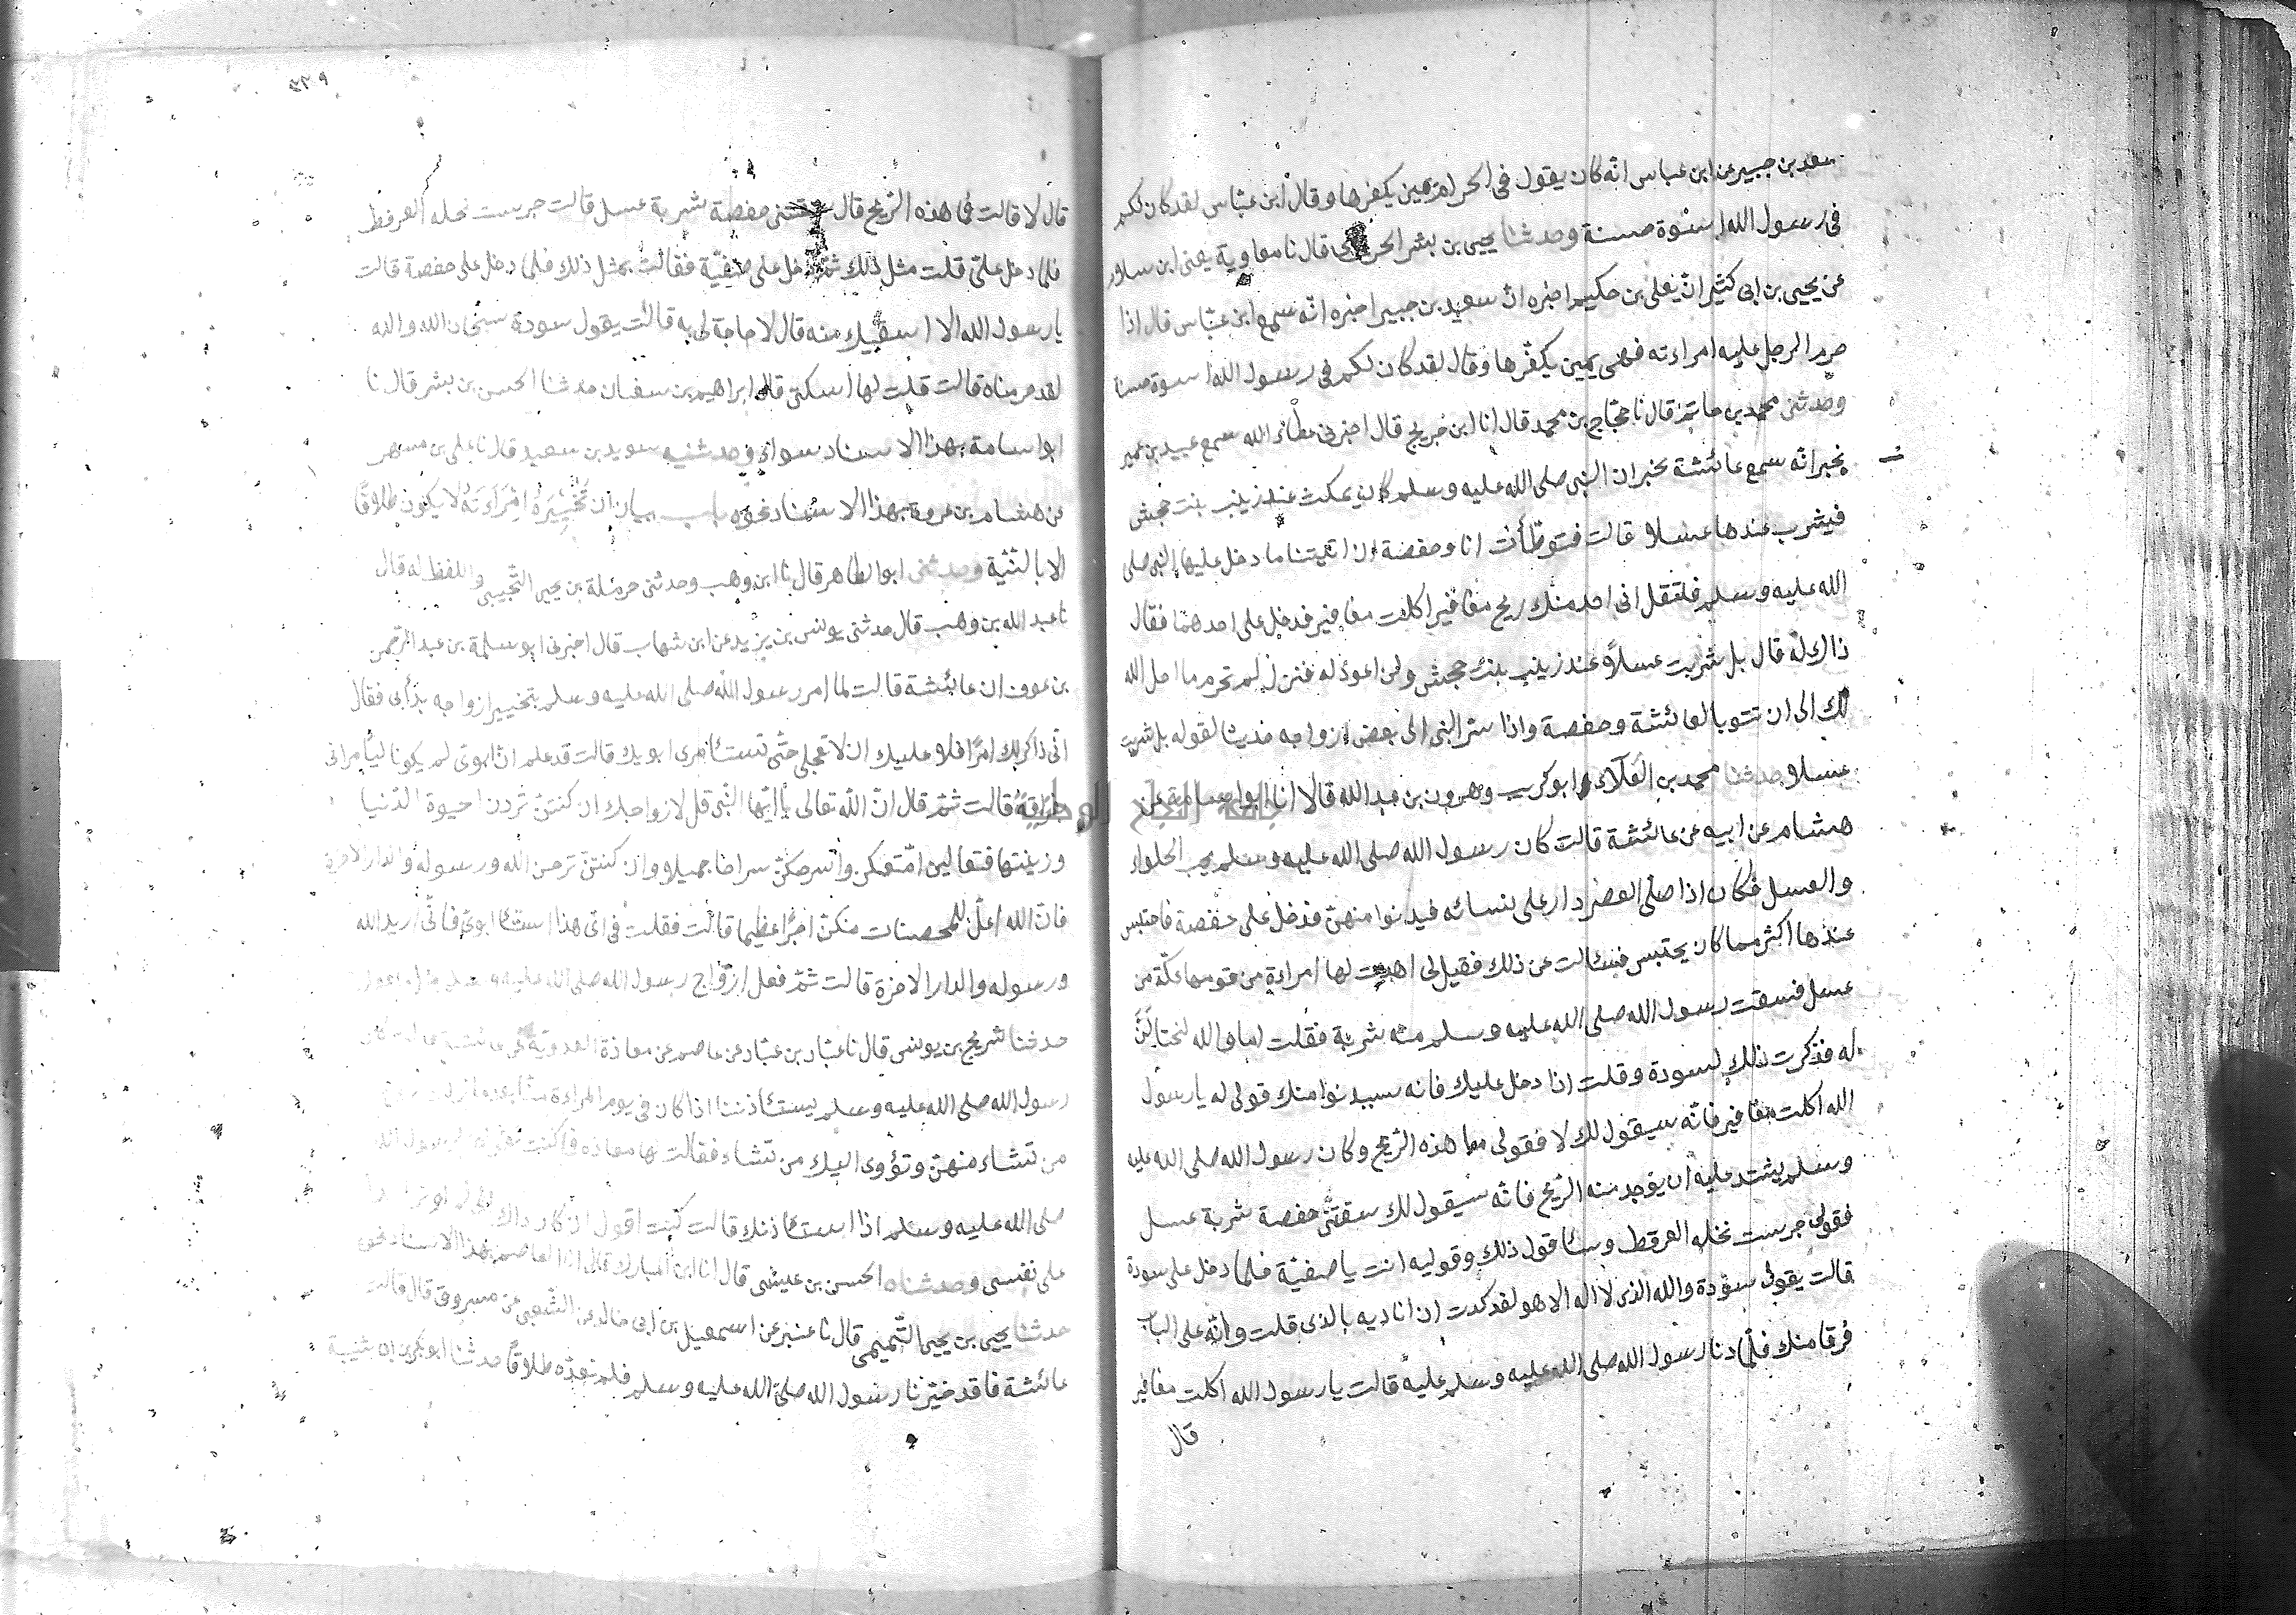 سعد بن جبير عن ابن عباس انه كان يقول في الحرام يمين يكفرها وقال ابن عباس لقد كان لكم
في رسول الله اسوة حسنة وحدثنا يحيى بن بشر الحريري قال نا معاوية يعنى ابن سلام
عن يحيى بن ابى كثير ان يعلى بن حكيم اخبره ان سعيد بن جبير اخبره انه سمع ابن عباس قال اذا
حرم الرجل عليه امراءته فهى يمين يكفرها وقال لقد كان لكم فى رسول الله اسوة حسنة
وحدثنى محمد بن حاتم قال نا حجاج بن محمد قال انا ابن جريج قال اخبرنى عطاء انه سمع عبيد بن عمير
يخبر انه سمع عائشة تخبر ان النبى صلى الله عليه وسلم كان يمكث عند زينب بنت جحش
فيشرب عندها عسلا قالت فتوطأت انا وحفصة ان ايتنا ما دخل عليها النبى صلى
الله عليه وسلم فلتقل انى اجد منك ريح مغافير اكلت مغافير فدخل على احدهما فقال
ذاك له قال بل شربت عسلاً عند زينب بنت جحش ولن اعود له فنزل لم تحرم ما احل الله
لك الى ان تتوبا لعائشة وحفصة واذا سر النبى الى بعض ازواجه حديثا لقوله بل شربت
عسلا وحدثنا محمد بن العلاء وابو كريب وهرون بن عبد الله قالا انا ابو اسامة عن
هشام عن ابيه عن عائشة قالت كان رسول الله صلى الله عليه وسلم يحب الحلواء
والعسل فكان اذا صلى العصر دار على نسائه فيدنوا منهن فدخل على حفصة فاحتبس
عندها اكثر مما كان يحتبس فسئالت عن ذلك فقيل لى اهدت لها امراءة من قومها عكة من
عسل فسقت رسول الله صلى الله عليه وسلم منه شربة فقلت اما والله لنحتالن
له فذكرت ذلك لسودة وقلت اذا دخل عليك فانه سيدنوا منك قولى له يا رسول
الله اكلت مغافير فانه سيقول لك لا فقولى ما هذه الريح وكان رسول الله صلى الله عليه
وسلم يشتد عليه ان يوجد منه الريح فانه سيقول لك سقتنى حفصة شربة عسل
فقولى جرست نحله العرفط وسئا قول ذلك وقوليه انت يا صفية فلما دخل على سودة
قالت يقول سودة والله الذى لا اله الا هو لقد كدت ان اناديه بالذى قلت وانه على الباب
فرقا منك فلما دنا رسول الله صلى الله عليه وسلم عليه قالت يا رسول الله اكلت مغافير
قال
٢٣٩
قال لا قالت فما هذه الريح قال سقتنى حفصة شربة عسل قالت جرست نحله العرفط
فلما دخل على قلت مثل ذلك ثم دخل على صفية فقالت بمثل ذلك فلما دخل على حفصة قالت
يا رسول الله الا اسقيك منه قال لا حاجة لى به قالت يقول سودة سبحان الله والله
لقد حرمناه قالت قلت لها اسكتى قال ابراهيم بن سفيان حدثنا الحسن بن بشر قال نا
ابو اسامة بهذا الاسناد سواء وحدثنيه سويد بن سعيد قال نا على بن مسهر
عن هشام بن عروة بهذا الاسناد نحوه باب بيان ان تخييره امراءته لا يكون طلاقًا
الا بالنية وحدثنى ابو الطاهر قال نا ابن وهب وحدثنى حرملة بن يحيى التجيبى واللفظ له قال
نا عبد الله بن وهب قال حدثنى يونس بن يزيد عن ابن شهاب قال اخبرنى ابو سلمة بن عبد الرحمن
بن عوف ان عائشة قالت لما امر رسول الله صلى الله عليه وسلم بتخيير ازواجه بدأبى فقال
انى ذاكر لك امرًا فلا عليك ان لا تعجلى حتى تستئامرى ابويك قالت قد علم ان ابوى لم يكونا ليأمرانى
بفراقه قالت ثم قال ان الله تعالى يا ايها النبى قل لازواجك ان كنتن تردن الحيوة الدنيا
وزينتها فتعالين امتعكن واسرحكن سراحا جميلا وان كنتن تردن الله ورسوله والدار الاخرة
فان الله اعد للمحصنات منكن اجرًا عظيما قالت فقلت فى اى هذا استئا ابوى فانى اريد الله
ورسوله والدار الاخرة قالت ثم فعل ازواج رسول الله صلى الله عليه وسلم
حدثنا شريج بن يونس قال نا عباد بن عباد عن عاصم عن معاذة العدوية عن عائشة
رسول الله صلى الله عليه وسلم يستئاذننا اذا كان فى يوم المراءة منا بعد ما نزلت
من تشاء منهن وتؤوى اليك من تشاء فقالت لها معاذة فما كنت تقولين لرسول الله
صلى الله عليه وسلم اذا استئاذنك قالت كنت اقول ان كان ذاك الى لم اوثر
على نفسى وحدثناه الحسن بن عيسى قال انا ابن المبارك قال انا العاصم بهذا الاسناد نحوه
حدثنا يحيى بن يحيى التميمى قال نا عنبر عن اسمعيل بن ابى خالد عن الشعبى عن مسروق قال قالت
عائشة قد خيرنا رسول الله صلى الله عليه وسلم فلم نعده طلاقًا حدثنا ابو بكر بن ابى شيبة